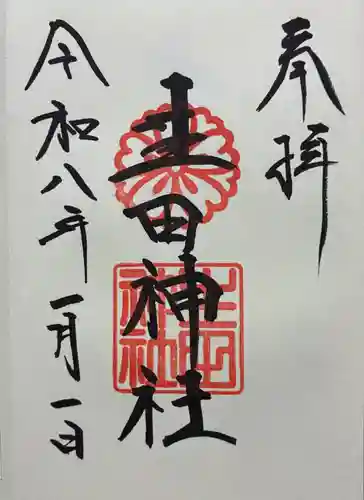 奉拝
生田神社
令和八年一月一日
生田
神社